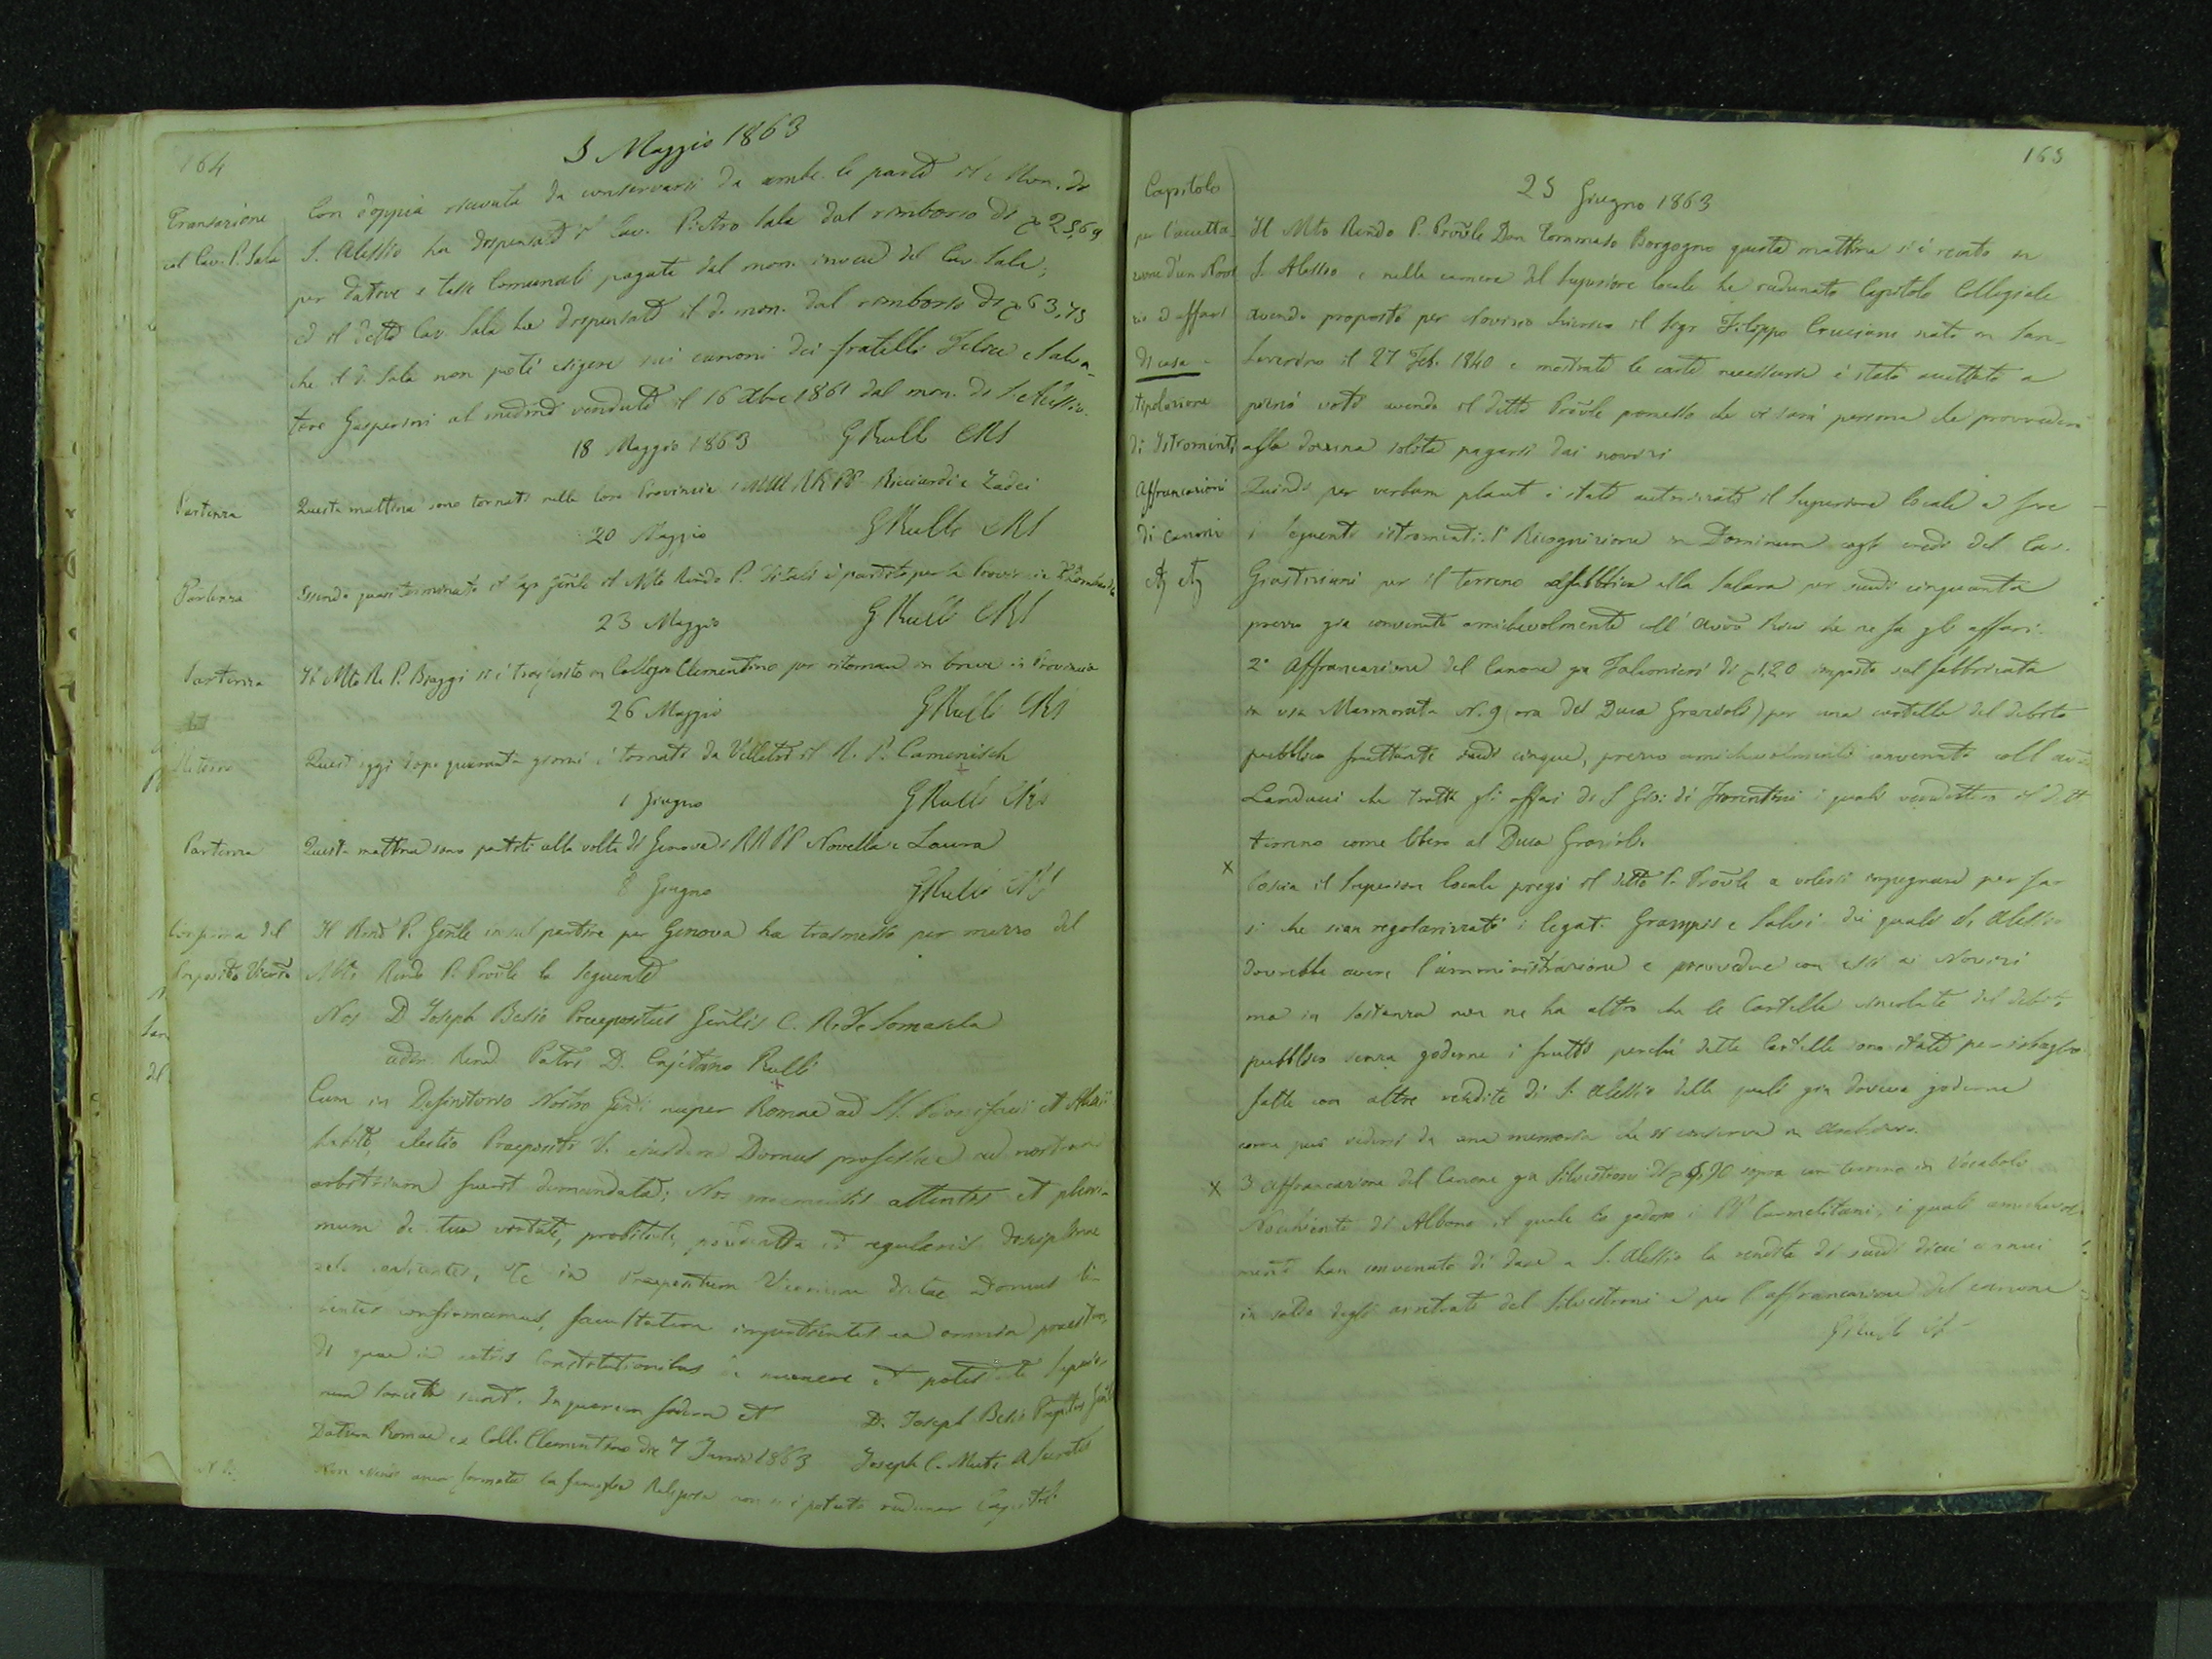 164
5 Maggio 1863
Transazione
col Cav. P. Sala
Con doppia ricevuta da conservarsi da ambe le parti il Mon. di
S. Alessio ha dispensato il Cav. Pietro Sala dal rimborso di 25,69
per dative e tasse Comunali pagate dal mon. invece del Cav. Sala;
ed il detto Cav. Sala ha dispensato il d. mon. dal rimborso di 63,75
che il d. Sala non poté esigere sui canoni dei fratelli Felice e Salva-
tore Gasperini al medmo venduti il 16 Xbre 1861 dal mon. di S. Alessio.
18 Maggio 1863 GRulli CRS
Partenza
Questa mattina sono tornati nella loro Provincia i MM RR PP Ricciardi e Zadei
20 Maggio GRulli CRS
Partenza
Essendo quasi terminato il Cap. Gnle il Mto Rndo P. Vitali è partito per la Provincia Lombarda
23 Maggio GRulli CRS
Partenza
Il Mto R. P. Biaggi si è trasferito in Collegio Clementino per ritornare in breve in Provincia
26 Maggio GRulli CRS
Ritorno
Quest'oggi dopo quaranta giorni è tornato da Velletri il R. P. Camenisch
1 Giugno GRulli CRS
Partenza
Questa mattina sono partiti alla volta di Genova i RR PP Novella e Laura
8 Giugno GRulli CRS
Conferma del
Preposito Vicario
Il Rmo P. Gnle in sul partire per Genova ha trasmesso per mezzo del
Mto Rndo P. Provle la seguente
Nos D. Joseph Besio Praepositus Gnlis C. R. de Somascha
adm. Rend. Patri D. Cajetano Rulli
Cum in Definitorio Nostro Gnli nuper Romae ad SS. Bonifacii et Alexii
habito, electio Praepositi V. eiusdem Domus professae ad nostrum
arbitrium fuerit demandata; Nos praemissis attentis et pluri-
mum de tua virtute, probitate, prudentia et regularis disciplinae
zelo confidentes, Te in Praepositum Vicarium dictae Domus
confirmamus, facultatem impertientes ea omnia praestan-
di quae in nostris Constitutionibus de munere et potestate Superio-
rum sancita sunt. In quorum fidem et
D. Joseph Besio Praeptus Gnlis
Datum Romae ex Coll. Clementino die 7 Junii 1863 Joseph C. Muti a Secretis
N. B. Non essendo ancor formata la famiglia Religiosa non si è potuto radunar Capitolo
165
25 Giugno 1863
Capitolo
per l'accetta-
zione d'un Novi-
zio e affari
di casa
stipolazione
di Istromenti
Affrancazioni
di canoni
Il Mto Rndo P. Provle Don Tommaso Borgogno questa mattina si è recato in
S. Alessio e nella camera del Superiore locale ha radunato Capitolo Collegiale
avendo proposto per Novizio il Sigr Filippo Cruciani nato in San-
Severino il 27 Feb. 1840 e mostrate le carte necessarie è stato accettato a
pieni voti avendo il detto Provle promesso che vi sarà persona che provvederà
alla dozzina solita pagarsi dai novizi
Quindi per verbum placet è stato autorizzato il Superiore locale a fare
i seguenti istromenti: 1° Ricognizione in Dominum cogli eredi del Cav.
Giustiniani per il terreno a fabbrica alla Salara per scudi cinquanta
prezzo già convenuto amichevolmente coll' Avvo Ricci che ne fa gli affari.
2° Affrancazione del Canone già Falconieri di 1,20 imposto sul fabbricato
in via Marmorata N. 9 (ora del Duca Grazioli) per una cartella del debito
pubblico fruttante scudi cinque, prezzo amichevolmente convenuto coll' avo
Landucci che tratta gli affari di S. Gio: di Fiorentini i quali vendettero il detto
terreno come libero al Duca Grazioli.
x Poscia il Superiore locale pregò il detto P. Provle a volersi impegnare per far
sì che sian regolarizzati i legati Grampis e Salvi dei quali S. Alessio
dovrebbe avere l'amministrazione e provvedere con essi ai Novizi
ma in sostanza non ne ha altro che le Cartelle vincolate del debito
pubblico senza goderne i frutti perché dette Cartelle sono state per isbaglio
fatte con altre rendite di S. Alessio delle quali già doveva goderne
come può vedersi da una memoria che si conserva in Archivio.
x 3 Affrancazione del Canone già Silvestroni di sopra un terreno in Vocabolo
di Albano il quale lo godono i PP Carmelitani, i quali amichevol-
mente han convenuto di dare a S. Alessio la rendita di scudi dieci annui
in saldo degli arretrati del Silvestroni e per l'affrancazione del canone
GRulli